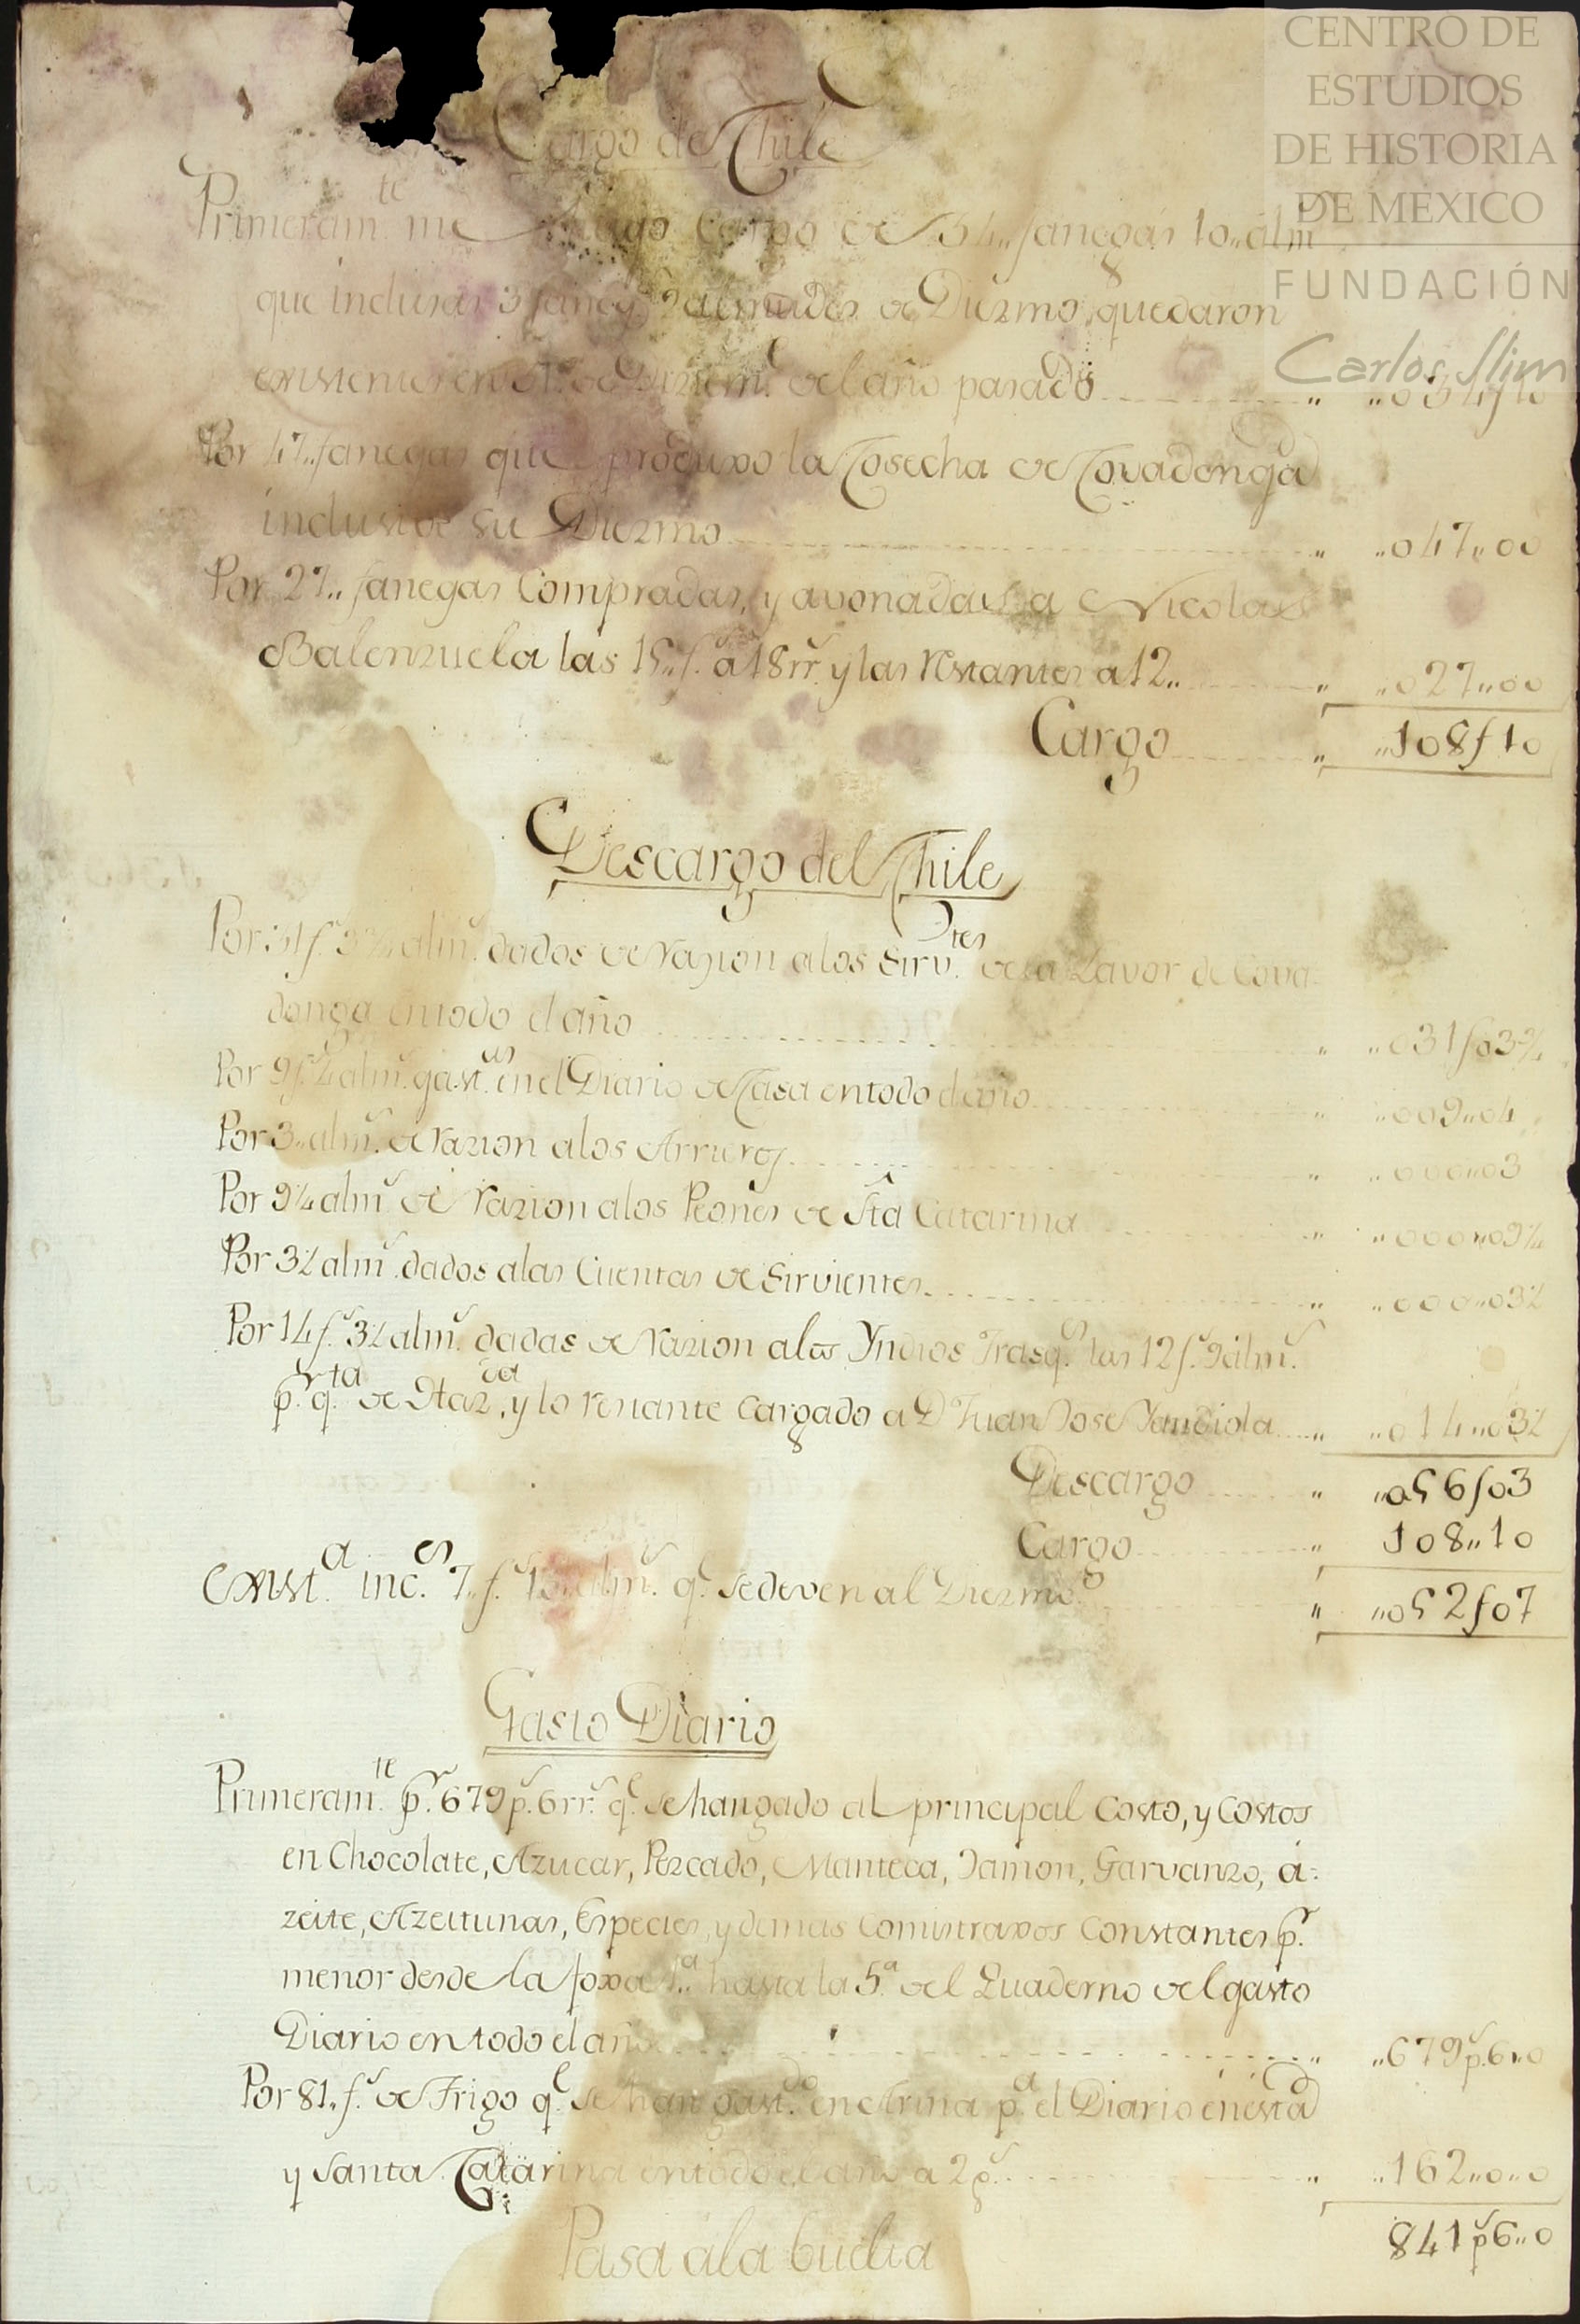 CENTRO DE
ESTUDIOS
DE HISTORIA
DE MEXICO
FUNDACIÓN
Carlos Slim
Cargo de Chile
Primeram.te me hago cargo de 34,, fanegas 10,, alm.s
que inclusas 3 faneg.s 9 almudes de Diezmo, quedaron
existentes en 31 de Diziem.e del año pasado ,, ,,034f10
Por 47,, fanegas que produxo la Cosecha de Covadonga
inclusive su Diezmo ,, ,,047,,00
Por 27,, fanegas Compradas, y avonadas a Nicolas
Balenzuela las 15,, f.s a 18 rr.s y las restantes a 12,, ,, ,,027,,00
Cargo ,, ,,108f10
Descargo del Chile
Por 31 f.s 3¾ alm.s dados de razion a los Sirv.tes de la Lavor de Cova
donga en todo el año ,, ,,031f03¾
Por 9 f.s 4 alm.s gast.as en el Diario de Casa en todo el año ,, ,,009,,04
Por 3,, alm.s de razion a los Arrieros ,, ,,000,,03
Por 9¼ alm.s de razion a los Peones de Sta Catarina ,, ,,000,,09¼
Por 3½ alm.s dados a las Cuentas de Sirvientes ,, ,,000,,03½
Por 14 f.s 3½ alm.s dadas de razion a los Yndios Trasq.s las 12 f.s 9 alm.s
p.r q.ta de Haz.da, y lo restante cargado a D Juan Jose Yandiola ,, ,,014,,03½
Descargo ,, ,,056f03
Cargo ,, 108,,10
Exist.a inc.s 7,, f.s 10,, alm.s q.e se deven al Diezmo ,, ,,052f07
Gasto Diario
Primeram.te p.r 679 p.s 6 rr.s q.e se han gado al principal costo, y costos
en Chocolate, Azucar, Pezcado, Manteca, Jamon, Garvanzo, a:
zeite, Azeitunas, Especies, y demas Comistraxos Constantes p.r
menor desde la foxa 1.a hasta la 5.a del Quaderno del gasto
Diario en todo el año ,, ,,679p.s6,,0
Por 81,, f.s de Trigo q.e se han gast.do en Arina p.a el Diario en esta
y Santa Catarina en todo el año a 2 p.s ,, ,,162,,0,,0
841p.s6,,0
Pasa a la buelta